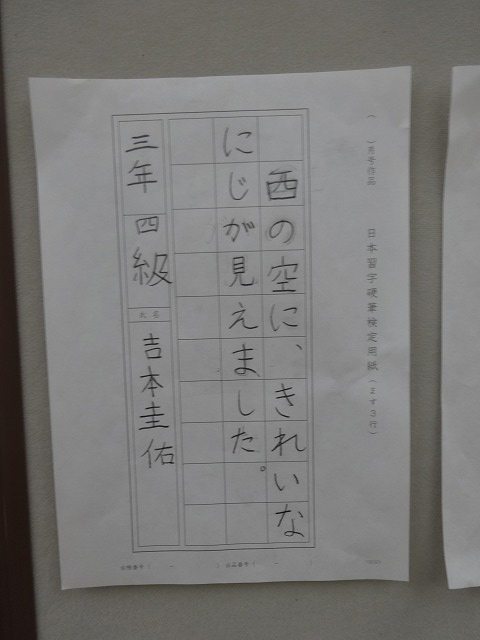 ( )月号作品 日本習字硬筆検定用紙(ます3行)
西の空に、きれいな
にじが見えました。
三年 四級 氏名 吉本圭佑
( - ) 出品番号( - )